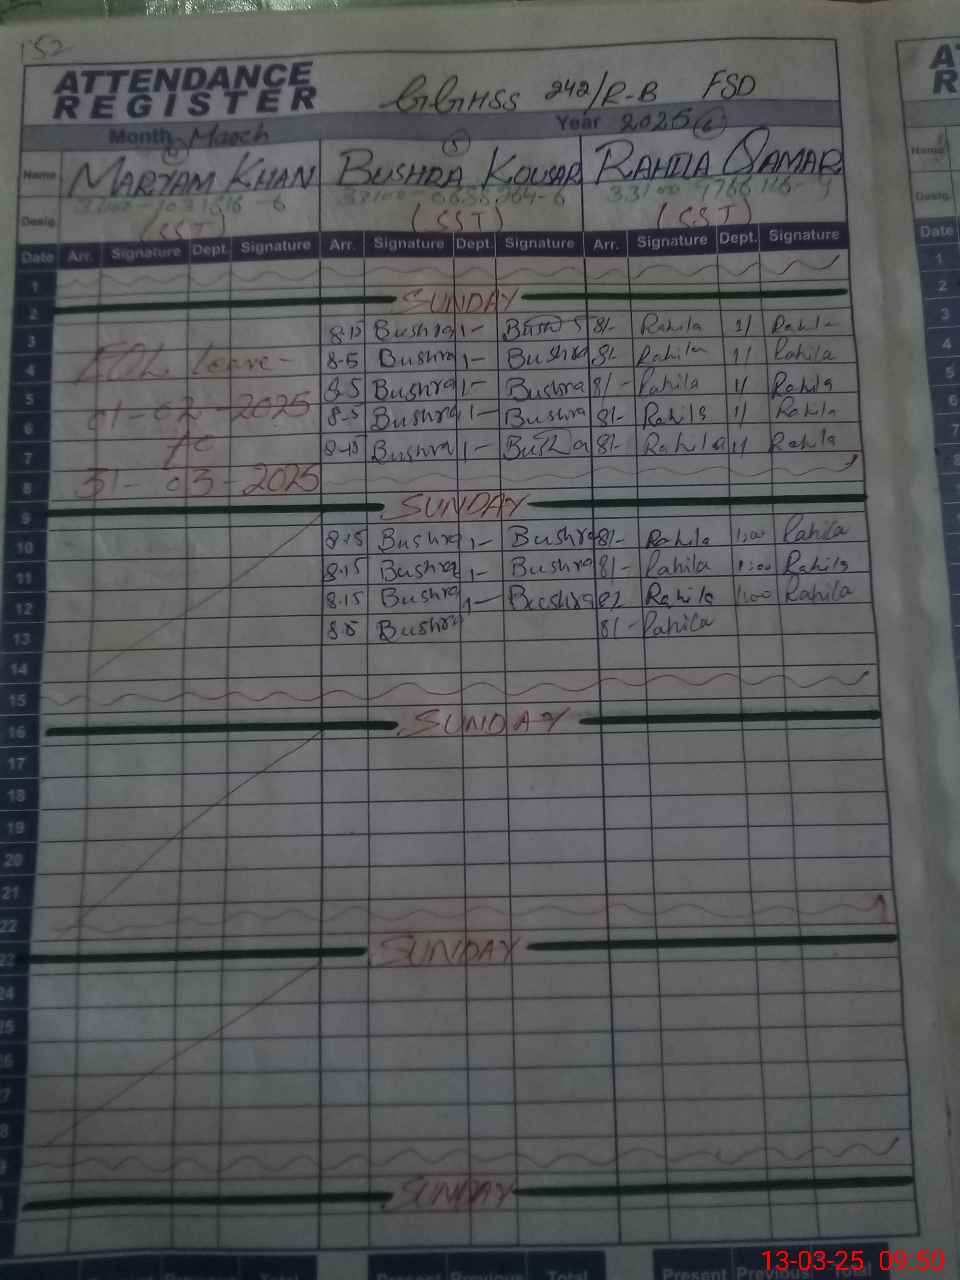 152
ATTENDANCE
REGISTER
GGHSS 242/R-B FSD
Month March Year 2025
Name MARYAM KHAN BUSHRA KOUSAR RAHILA QAMAR
Desig. (SST) (SST) (SST)
Date Arr. Signature Dept. Signature Arr. Signature Dept. Signature Arr. Signature Dept. Signature
1
2 SUNDAY
3 8-15 Bushra 1- Bushra 8/- Rahila 1/ Rahila
4 EOL leave - 8-5 Bushra 1- Bushra 8/- Rahila 1/ Rahila
5 8-5 Bushra 1- Bushra 8/- Rahila 1/ Rahila
6 01-02-2025 8-5 Bushra 1- Bushra 8/- Rahila 1/ Rahila
7 to 8-15 Bushra 1- Bushra 8/- Rahila 1/ Rahila
8 31-03-2025
9 SUNDAY
10 8-15 Bushra 1- Bushra 8/- Rahila 1:00 Rahila
11 8-15 Bushra 1- Bushra 8/- Rahila 1:00 Rahila
12 8-15 Bushra 1- Bushra Rahila 1:00 Rahila
13 8-5 Bushra 8/- Rahila
14
15
16 SUNDAY
17
18
19
20
21
22
23 SUNDAY
24
25
26
27
28
SUNDAY
Present Previous Total Present Previous Total
A
R
Name
Desig.
Date
1
2
3
4
5
6
7
8
13-03-25 09:50